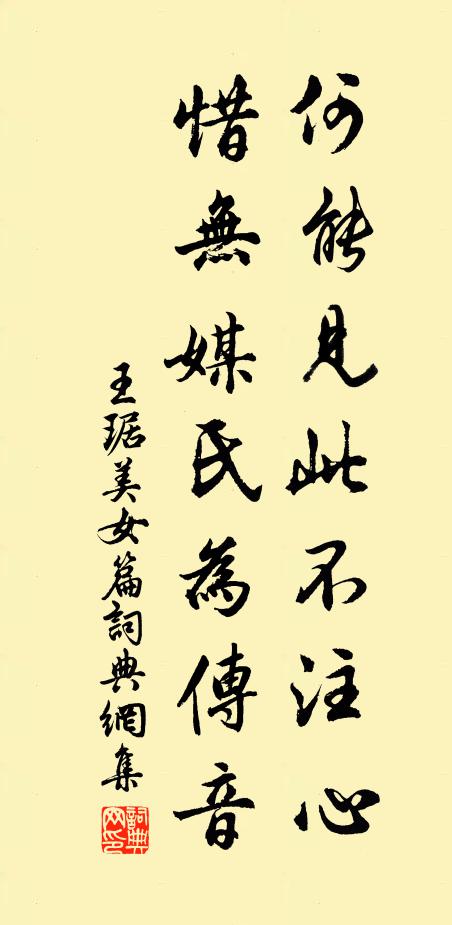 何能見此不注心
惜無媒氏為傳音
王琚美女篇詞典網集
詞典网印